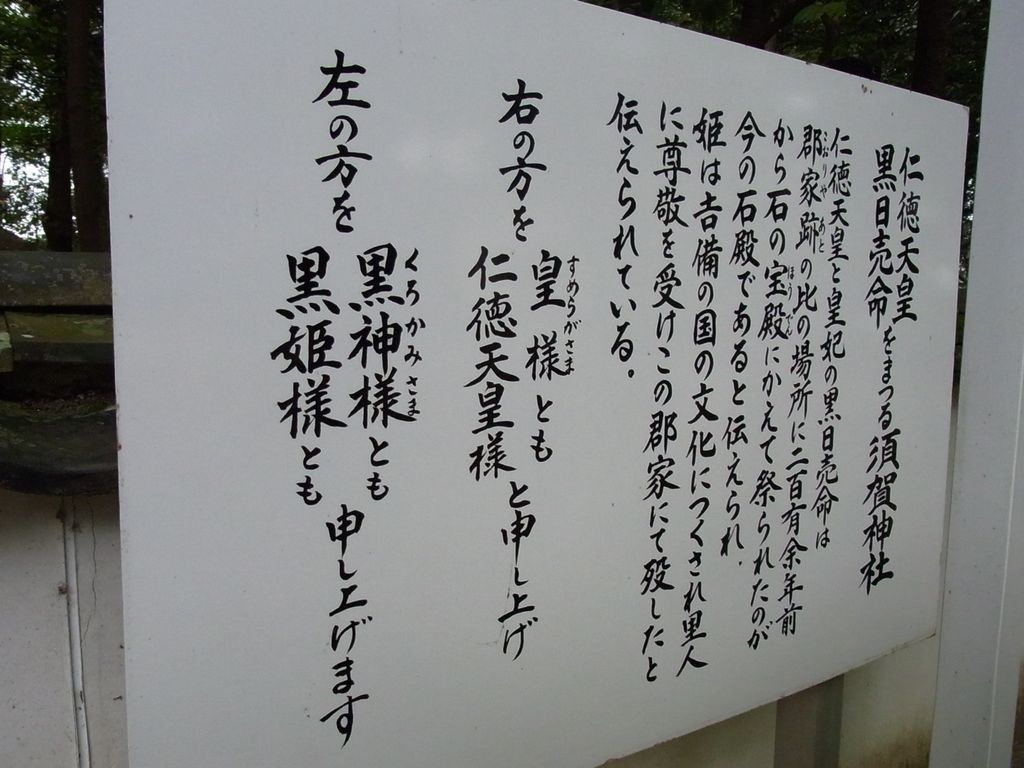 仁徳天皇
黒日売命をまつる須賀神社
仁徳天皇と皇妃の黒日売命は
郡家跡の此の場所に二百有余年前
こおりやあと
から石の宝殿にかえて祭られたのが
ほうでん
今の石殿であると伝えられ、
姫は吉備の国の文化につくされ里人
に尊敬を受けこの郡家にて歿したと
伝えられている。
右の方を
皇様とも
すめらがさま
仁徳天皇様
と申し上げ
左の方を
黒神様とも
くろかみさま
黒姫様とも
申し上げます